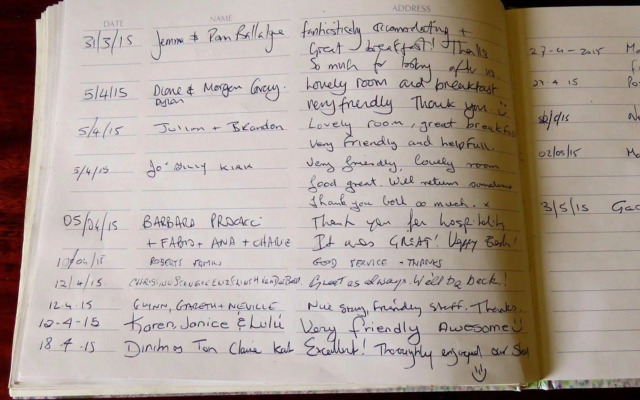 DATE NAME ADDRESS
31/3/15 Jemma & Pam fantastically accomodating +
Great breakfast! Thanks
so much for looking after us
5/4/15 Diane & Morgan Gray. Lovely room and breakfast
Dylan very friendly Thank you
5/4/15 Julian + Brandon Lovely room, great breakfast
very friendly and helpful.
5/4/15 Jo Billy KIRK Very friendly, lovely room
food great. Will return sometime
Thank you both so much. x
05/04/15 BARBARA Thank you for hospitality
+ FABIO + ANA + It was GREAT! Happy
GOOD SERVICE - THANKS
12/4/15 Great as always. We'll be back!
12.4.15 GLYNN, GARETH + NEVILLE Nice stay, friendly staff. Thanks.
12-4-15 Karen, Janice & Lulu Very friendly Awesome
18.4.15 Tom Claire Kat Excellent! Thoroughly enjoyed our stay
27-4-2015
02/05/15
3/5/15